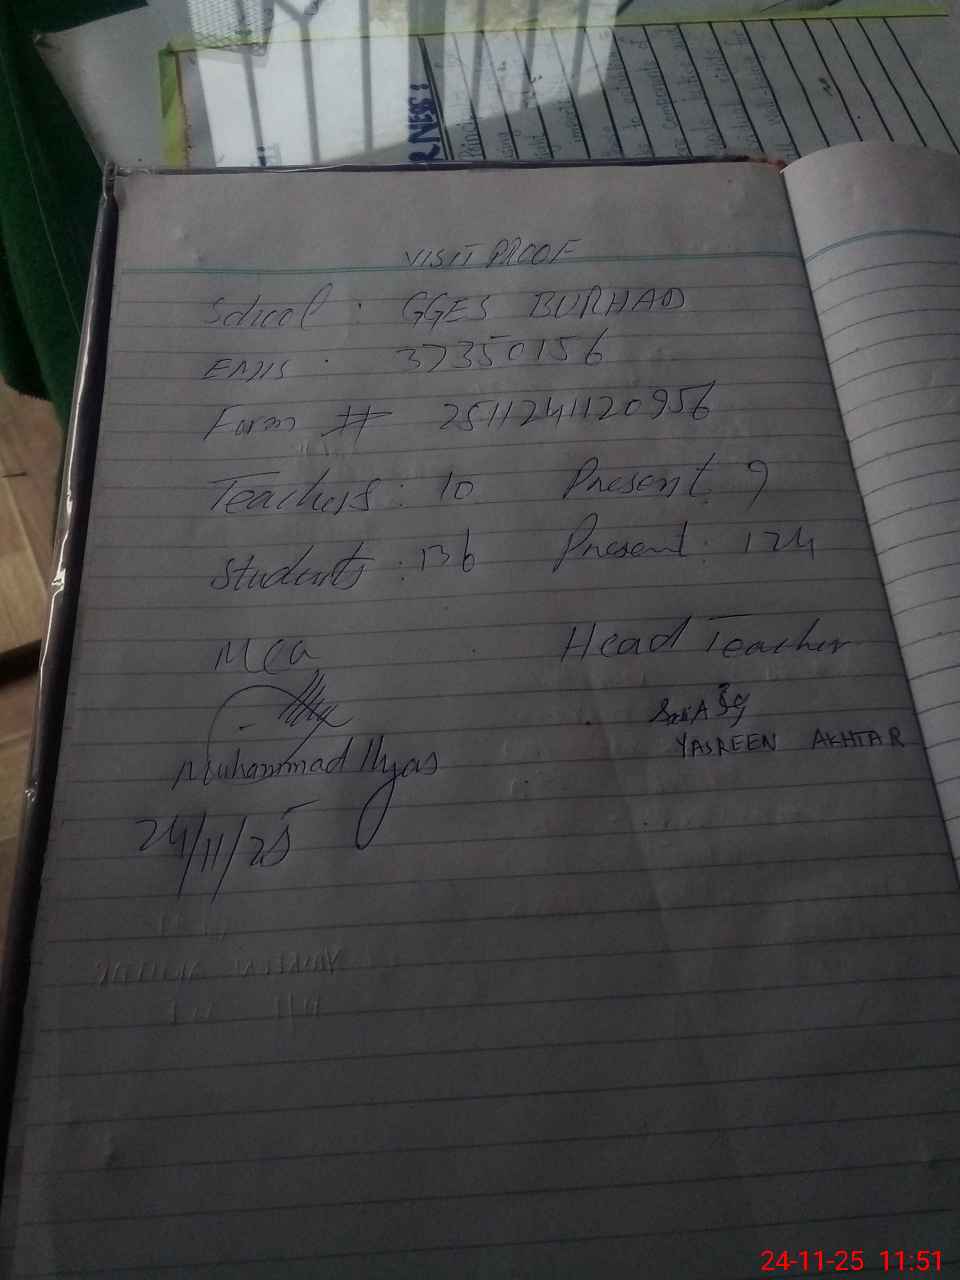 RNESS:
VISIT PROOF
School : GGES BURHAD
EMIS : 37350156
Form # 2511241120956
Teachers : 10 Present 9
Students : 136 Present : 124
MEA Head Teacher
Muhammad Ilyas YASREEN AKHTAR
24/11/25
24-11-25 11:51